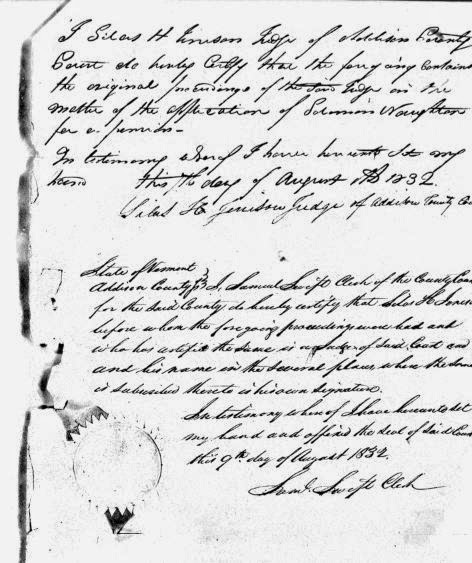 I Silas H Jenison Judge of Addison County
Court do hereby Certify that the foregoing contains
the original proceedings of the said Judge in the
matter of the application of Solomon Naughton
for a pension -
In testimony whereof I have hereunto set my
hand this day of August 1832.
Silas H. Jenison Judge of Addison County Co
State of Vermont
Addison County ss I, Samuel Swift Clerk of the County Cour
for the said County do hereby certify that Silas H. Jenison
before whom the foregoing proceedings were had and
who has certified the same is a Judge of said Court and
and his name in the several places where the same
is subscribed thereto is his own signature.
In testimony whereof I have hereunto set
my hand and affixed the seal of said Court
this 9th day of August 1832.
Saml. Swift Clerk